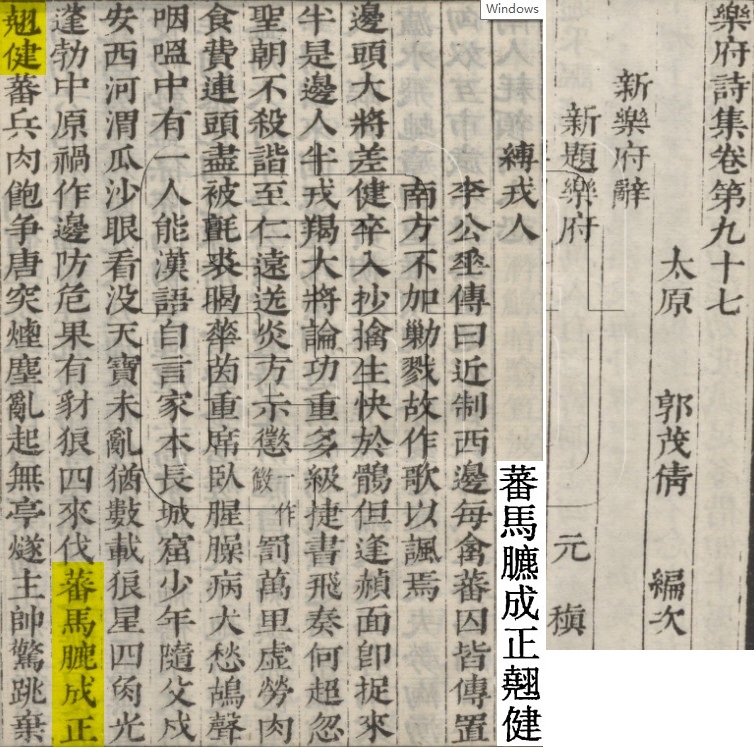 樂府詩集卷第九十七
太原 郭茂倩 編次
新樂府辭
新題樂府 元稹
縛戎人
李公垂傳曰近制西邊每禽蕃囚皆傳置
南方不加勦戮故作歌以諷焉
邊頭大將差健卒入抄擒生快於鶻但逢赬面卽捉來
半是邊人半戎羯大將論功重多級捷書飛奏何超忽
聖朝不殺諧至仁遠送炎方示懲一作微罰萬里虛勞肉
食費連頭盡被氈裘暍華茵重席臥腥臊病犬愁鴣聲
咽嗢中有一人能漢語自言家本長城窟少年隨父戍
安西河渭瓜沙眼看没天寶未亂猶數載狼星四角光
蓬勃中原禍作邊防危果有豺狼四來伐蕃馬臕成正
翹健蕃兵肉飽争唐突煙塵亂起無亭燧主帥驚跳棄
蕃馬臕成正翹健
Windows